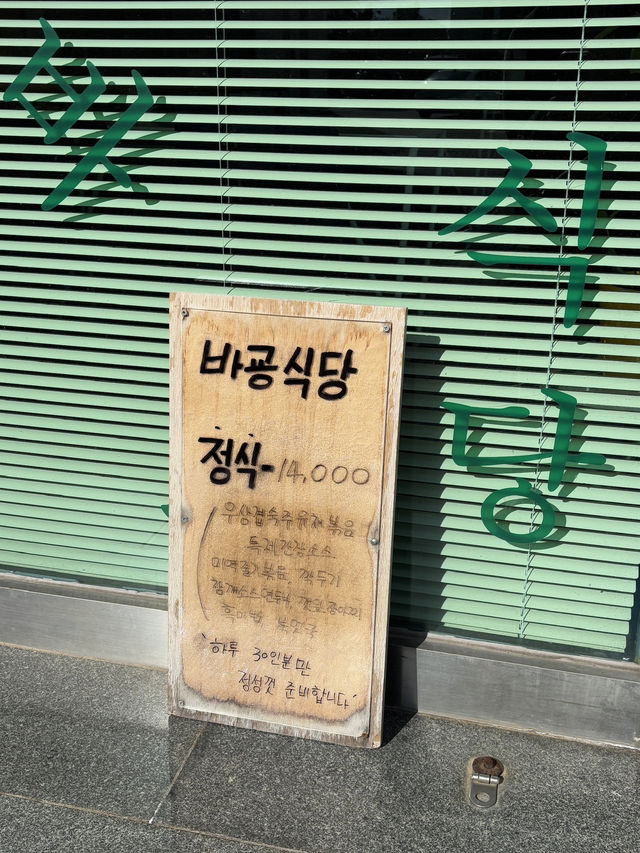 식
당
바굥식당
정식-14,000
우삼겹숙주유채볶음
특제간장소스
미역줄기볶음 깍두기
참깨소스연두부
흑미밥 북엇국
하루 30인분만
정성껏 준비합니다